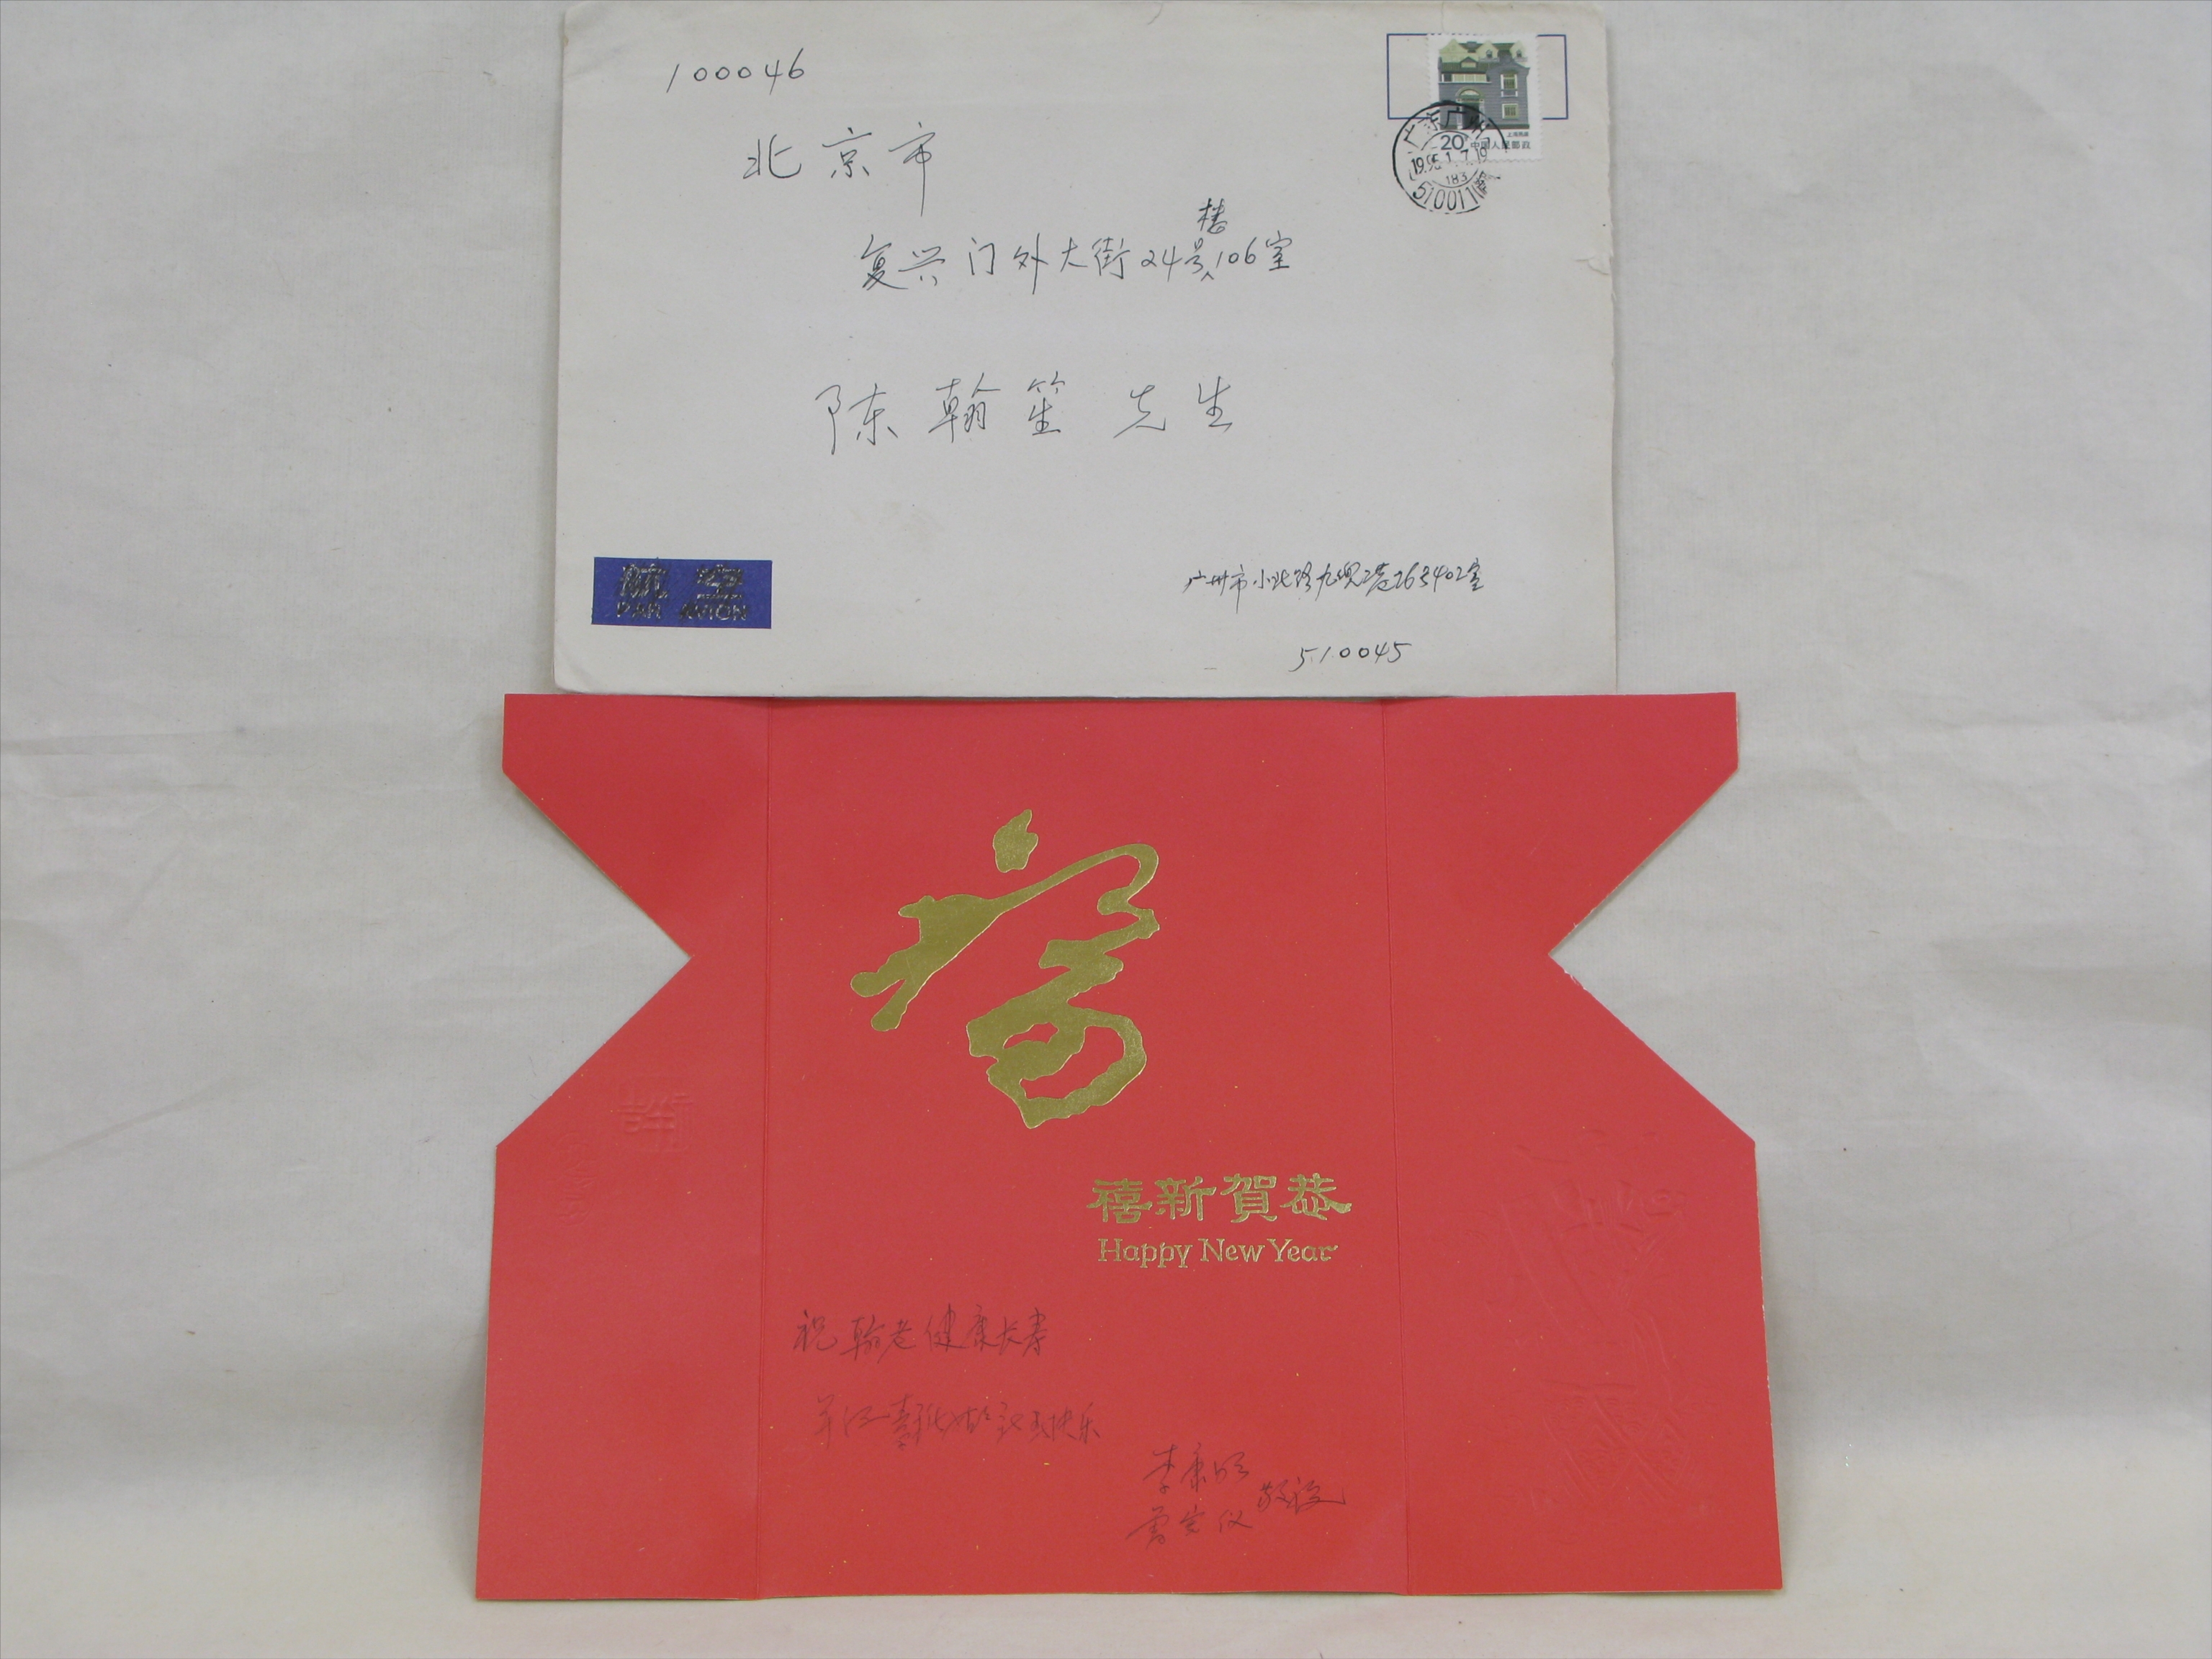 100046
北京市
复兴门外大街24号楼106室
陈翰笙 先生
上海民居
20
中国人民邮政
1995.1.7.19
510011
航空
PAR AVION
广州市小北路九坝2巷26号402室
510045
禧新賀恭
Happy New Year
祝翰老健康长寿
快乐
李康
敬祝